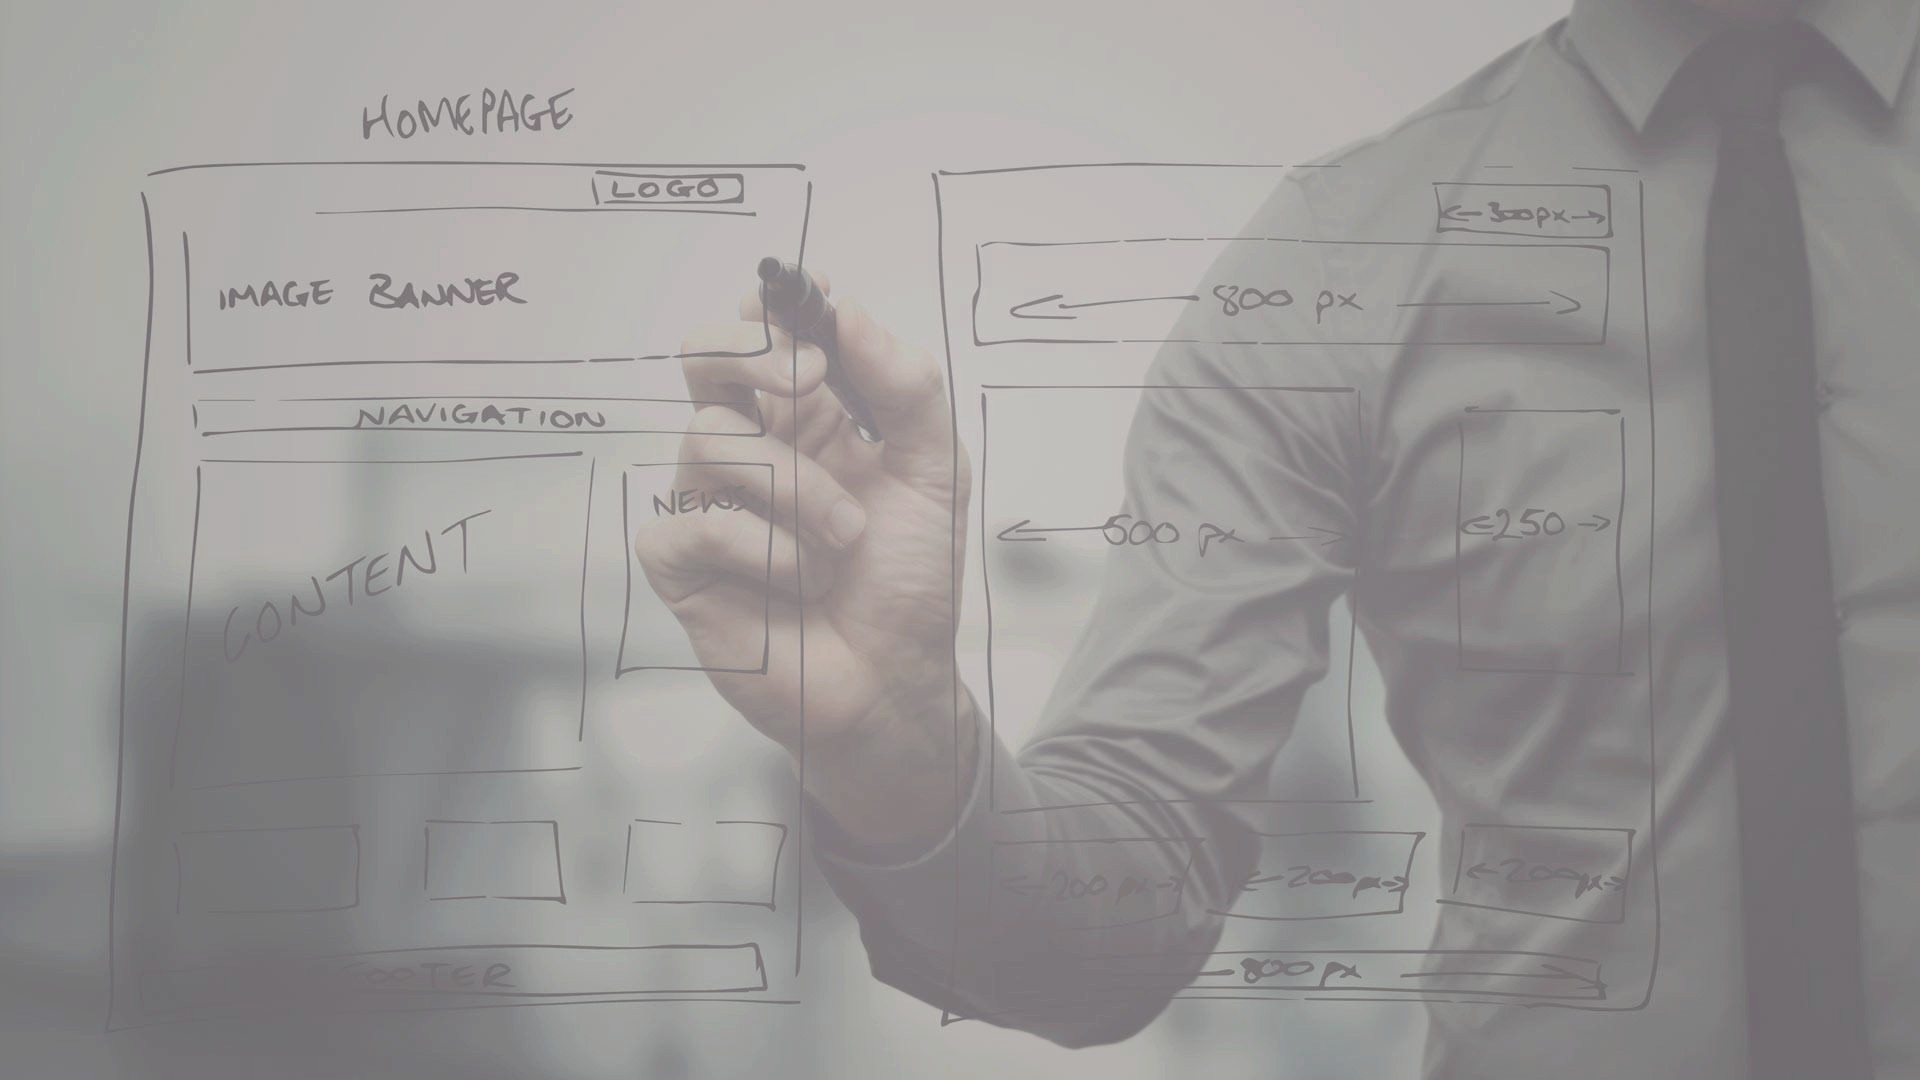 HOMEPAGE
LOGO
IMAGE BANNER
NAVIGATION
CONTENT
NEWS
FOOTER
300px
800 px
500 px
250
200 px
200px
200px
800px